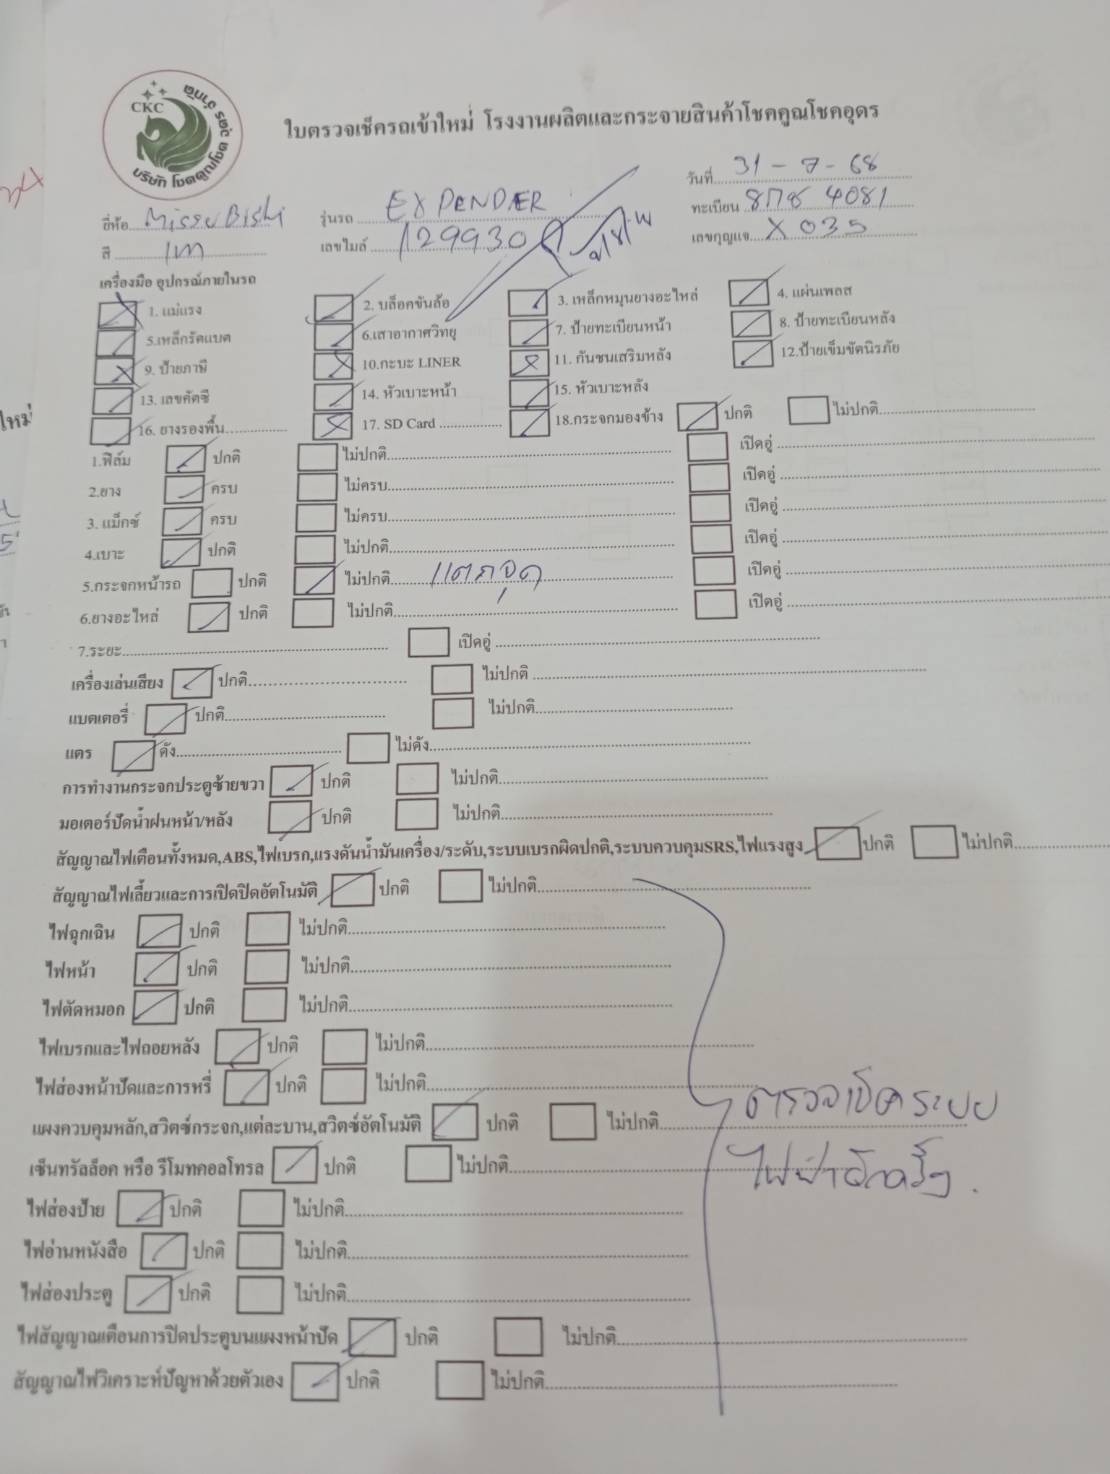 CKC
บริษัท โชคคูณโชค อุดร จำกัด
ใบตรวจเช็ครถเข้าใหม่ โรงงานผลิตและกระจายสินค้าโชคคูณโชคอุดร
วันที่ 31 - 7 - 68
ยี่ห้อ MissuBishi รุ่นรถ EXPENDER ทะเบียน 4081
สี เทา เลขไมล์ 129930 เลขกุญแจ X 035
เครื่องมือ อุปกรณ์ภายในรถ
1. แม่แรง 2. บล็อคขันล้อ 3. เหล็กหมุนยางอะไหล่ 4. แผ่นเพลท
5.เหล็กรัดแบต 6.เสาอากาศวิทยุ 7. ป้ายทะเบียนหน้า 8. ป้ายทะเบียนหลัง
9. ป้ายภาษี 10.กะบะ LINER 11. กันชนเสริมหลัง 12.ป้ายเข็มขัดนิรภัย
13. เลขคัตซี 14. หัวเบาะหน้า 15. หัวเบาะหลัง
16. ยางรองพื้น 17. SD Card 18.กระจกมองข้าง ปกติ ไม่ปกติ
1.ฟิล์ม ปกติ ไม่ปกติ เปิดอู่
2.ยาง ครบ ไม่ครบ เปิดอู่
3. แม็กซ์ ครบ ไม่ครบ เปิดอู่
4.เบาะ ปกติ ไม่ปกติ เปิดอู่
5.กระจกหน้ารถ ปกติ ไม่ปกติ แตก จุด เปิดอู่
6.ยางอะไหล่ ปกติ ไม่ปกติ เปิดอู่
7.ระยะ เปิดอู่
เครื่องเล่นเสียง ปกติ ไม่ปกติ
แบตเตอรี่ ปกติ ไม่ปกติ
แตร ดัง ไม่ดัง
การทำงานกระจกประตูซ้ายขวา ปกติ ไม่ปกติ
มอเตอร์ปัดน้ำฝนหน้า/หลัง ปกติ ไม่ปกติ
สัญญาณไฟเตือนทั้งหมด,ABS,ไฟเบรก,แรงดันน้ำมันเครื่อง/ระดับ,ระบบเบรกผิดปกติ,ระบบควบคุมSRS,ไฟแรงสูง ปกติ ไม่ปกติ
สัญญาณไฟเลี้ยวและการเปิดปิดอัตโนมัติ ปกติ ไม่ปกติ
ไฟฉุกเฉิน ปกติ ไม่ปกติ
ไฟหน้า ปกติ ไม่ปกติ
ไฟตัดหมอก ปกติ ไม่ปกติ
ไฟเบรกและไฟถอยหลัง ปกติ ไม่ปกติ
ไฟส่องหน้าปัดและการหรี่ ปกติ ไม่ปกติ
แผงควบคุมหลัก,สวิตช์กระจก,แต่ละบาน,สวิตช์อัตโนมัติ ปกติ ไม่ปกติ
ตรวจเช็คระบบ
ไฟฟ้าอีกครั้ง.
เซ็นทรัลล็อค หรือ รีโมทคอลโทรล ปกติ ไม่ปกติ
ไฟส่องป้าย ปกติ ไม่ปกติ
ไฟอ่านหนังสือ ปกติ ไม่ปกติ
ไฟส่องประตู ปกติ ไม่ปกติ
ไฟสัญญาณเตือนการปิดประตูบนแผงหน้าปัด ปกติ ไม่ปกติ
สัญญาณไฟวิเคราะห์ปัญหาด้วยตัวเอง ปกติ ไม่ปกติ